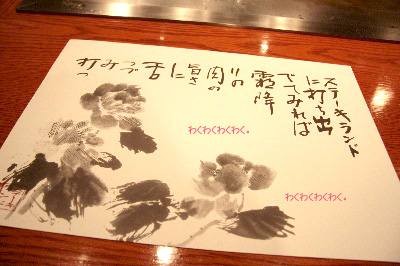 ステーキランド
に打ち出
でてみれば
霜降
りの
肉の
旨さ
に
舌
づ
つ
み
打つ
わくわくわくわく。
わくわくわくわく。